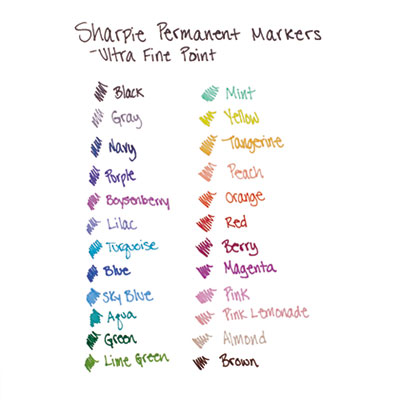 Sharpie Permanent Markers
-Ultra Fine Point
Black
Gray
Navy
Purple
Boysenberry
Lilac
Turquoise
Blue
Sky Blue
Aqua
Green
Lime Green
Mint
Yellow
Tangerine
Peach
Orange
Red
Berry
Magenta
Pink
Pink Lemonade
Almond
Brown